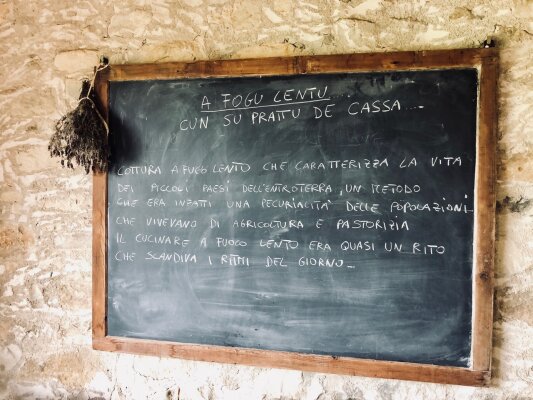 A FOGU LENTU....
CUN SU PRATTU DE CASSA....
COTTURA A FUEGO LENTO CHE CARATTERIZZA LA VITA
DEI PICCOLI PAESI DELL'ENTROTERRA, UN METODO
CHE ERA INFATI UNA PECURIALITÀ DELLE POPOLAZIONI
CHE VIVEVANO DI AGRICOLTURA E PASTORIZIA
IL CUCINARE A FUOCO LENTO ERA QUASI UN RITO
CHE SCANDIVA I RITMI DEL GIORNO_